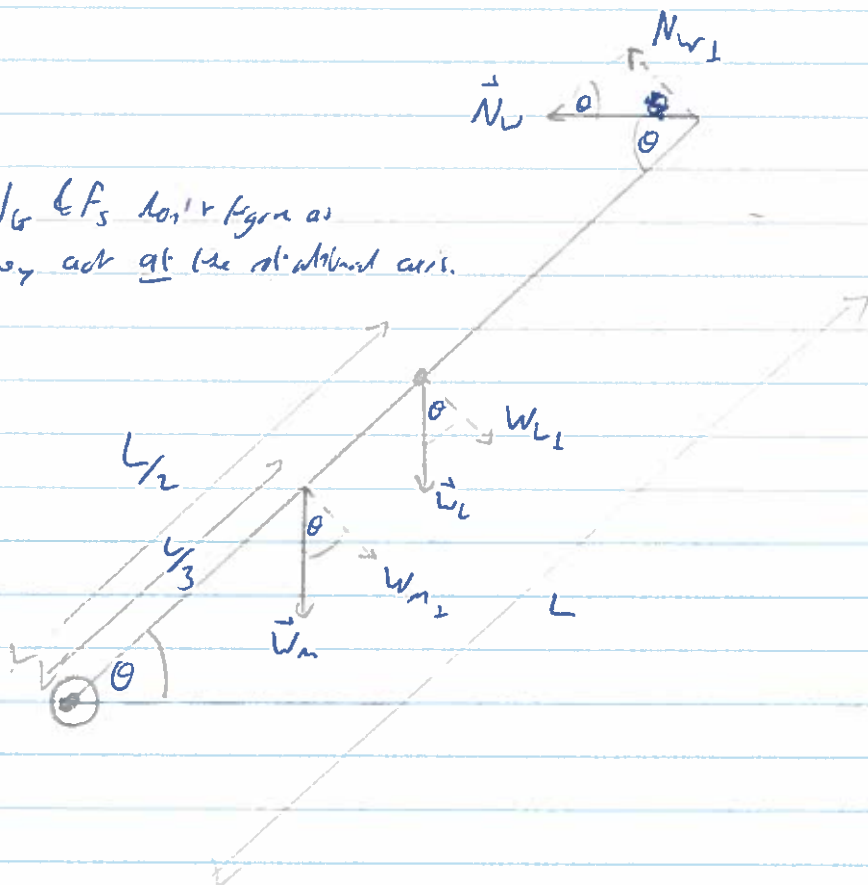 N_W⊥
N⃗_W θ
θ
N_G & F_s don't figure as
they act at the rotational axis.
θ
W_L⊥
L/2
W⃗_L
θ
L/3
W_m⊥
L
W⃗_m
θ